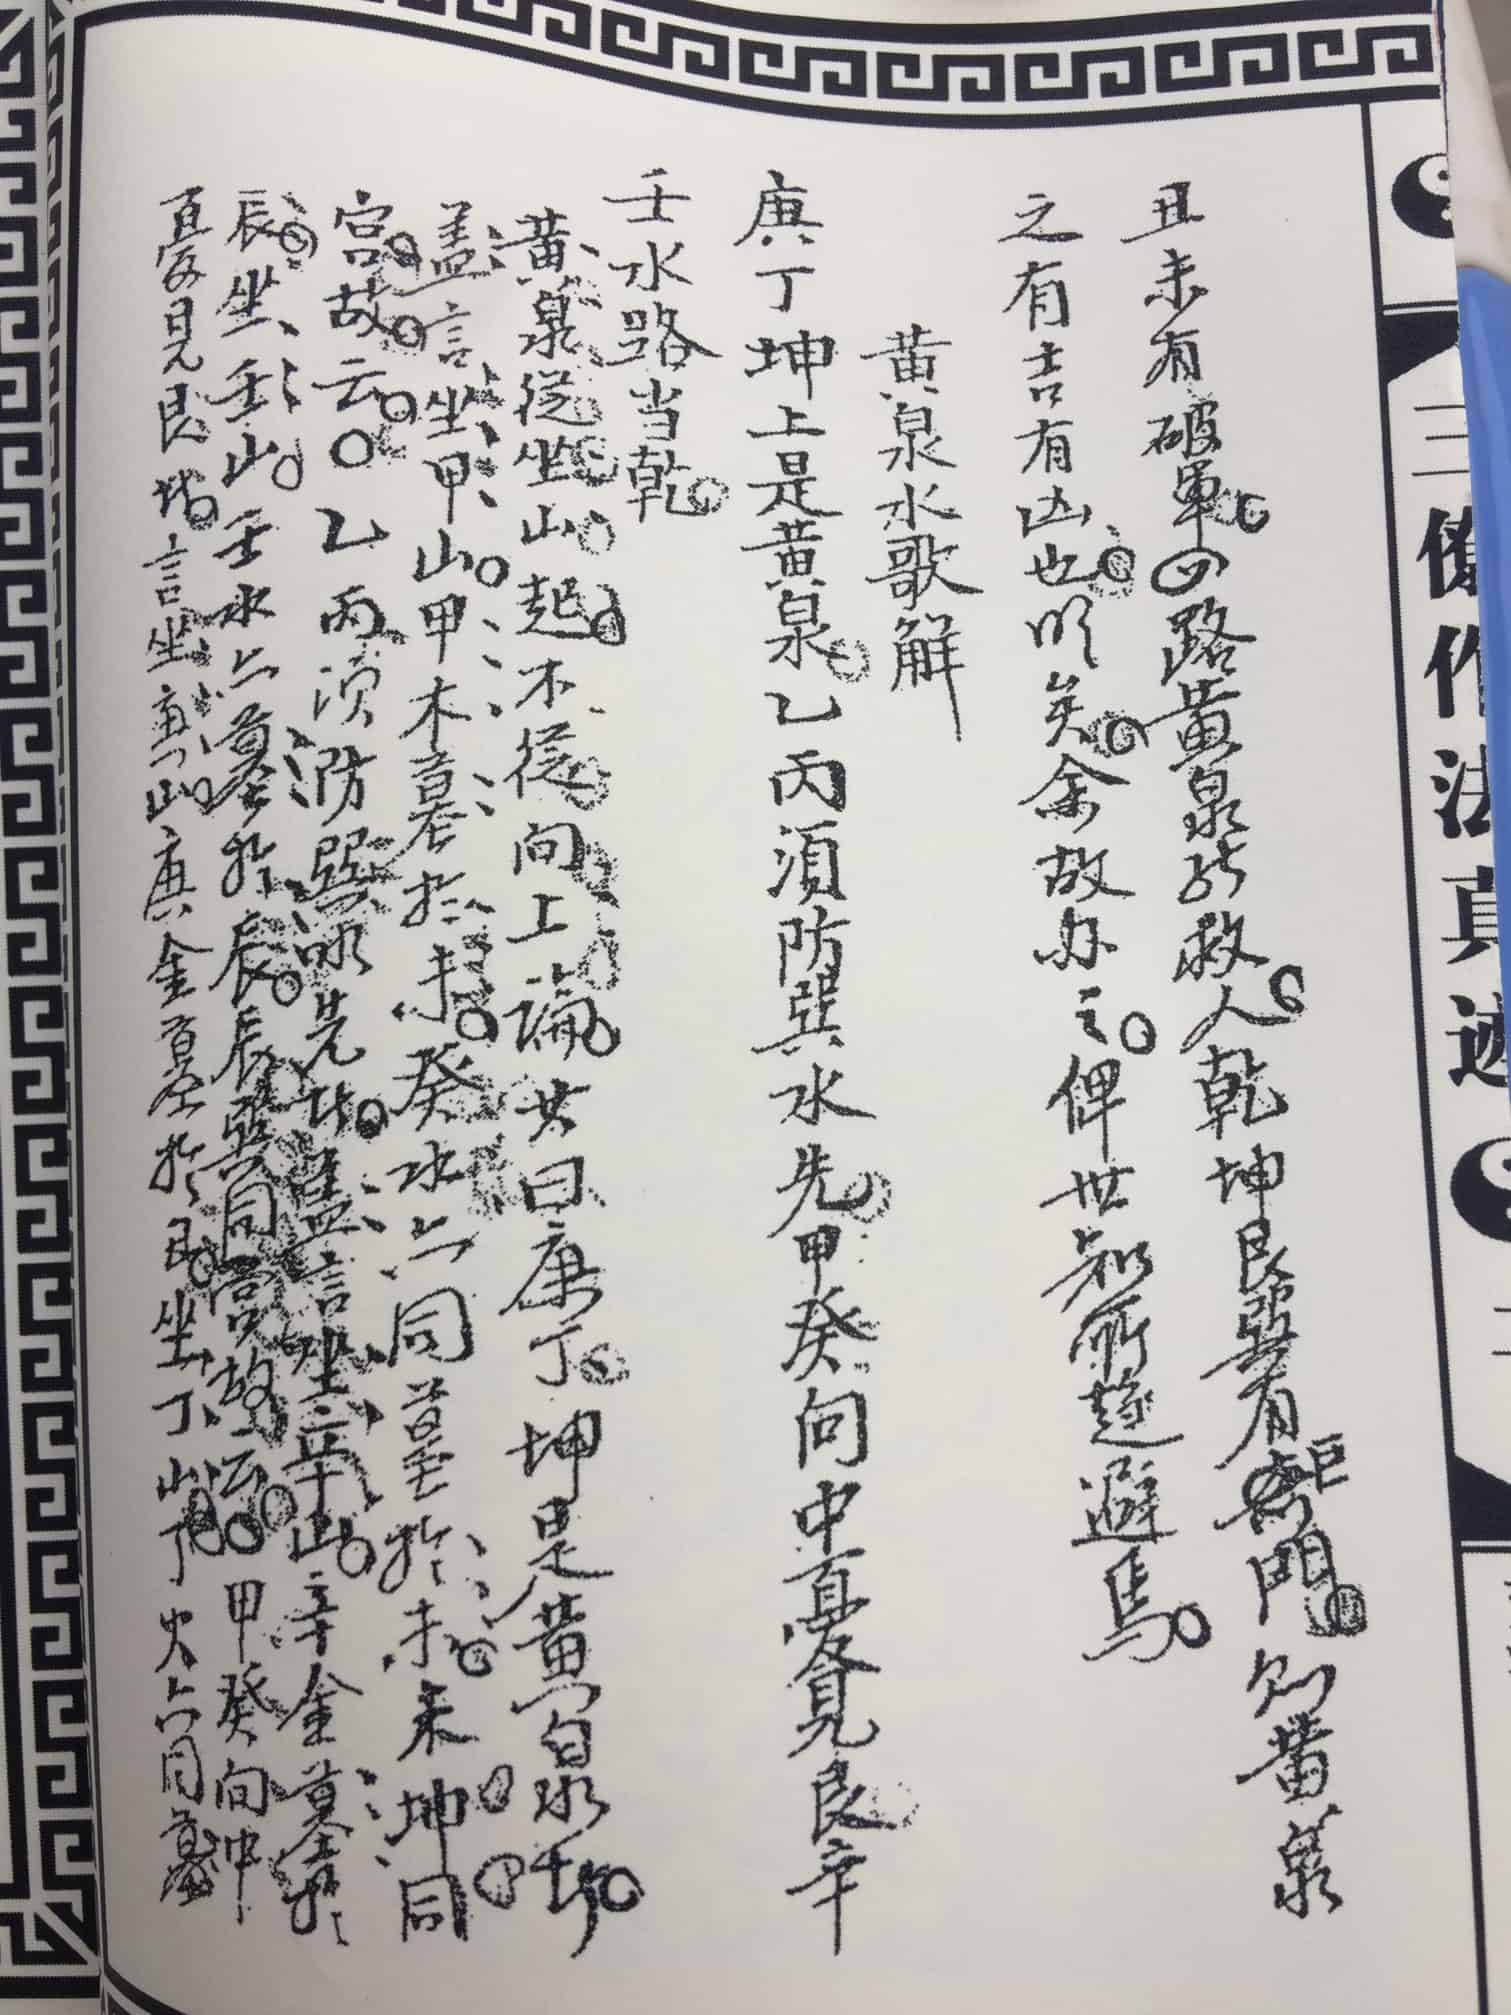 丑未有破軍四路黄泉能救人乾坤艮巽有巨門則黄泉
之有吉有凶也明矣余故办之俾世知所趨避焉
黄泉水歌解
庚丁坤上是黄泉乙丙須防巽水先甲癸向中憂見艮辛
壬水路当乾
黄泉從坐山起不從向上論其曰庚丁坤是黄泉水
盖言坐甲山甲木墓於未癸水亦同墓於未未坤同
宫故云乙丙須防巽水先盖言坐辛山辛金墓於
辰坐壬山壬水亦墓於辰辰巽同宫故云甲癸向中
憂見艮盖言坐庚山庚金墓於丑坐丁山丁火亦同墓
三僚作法真迹